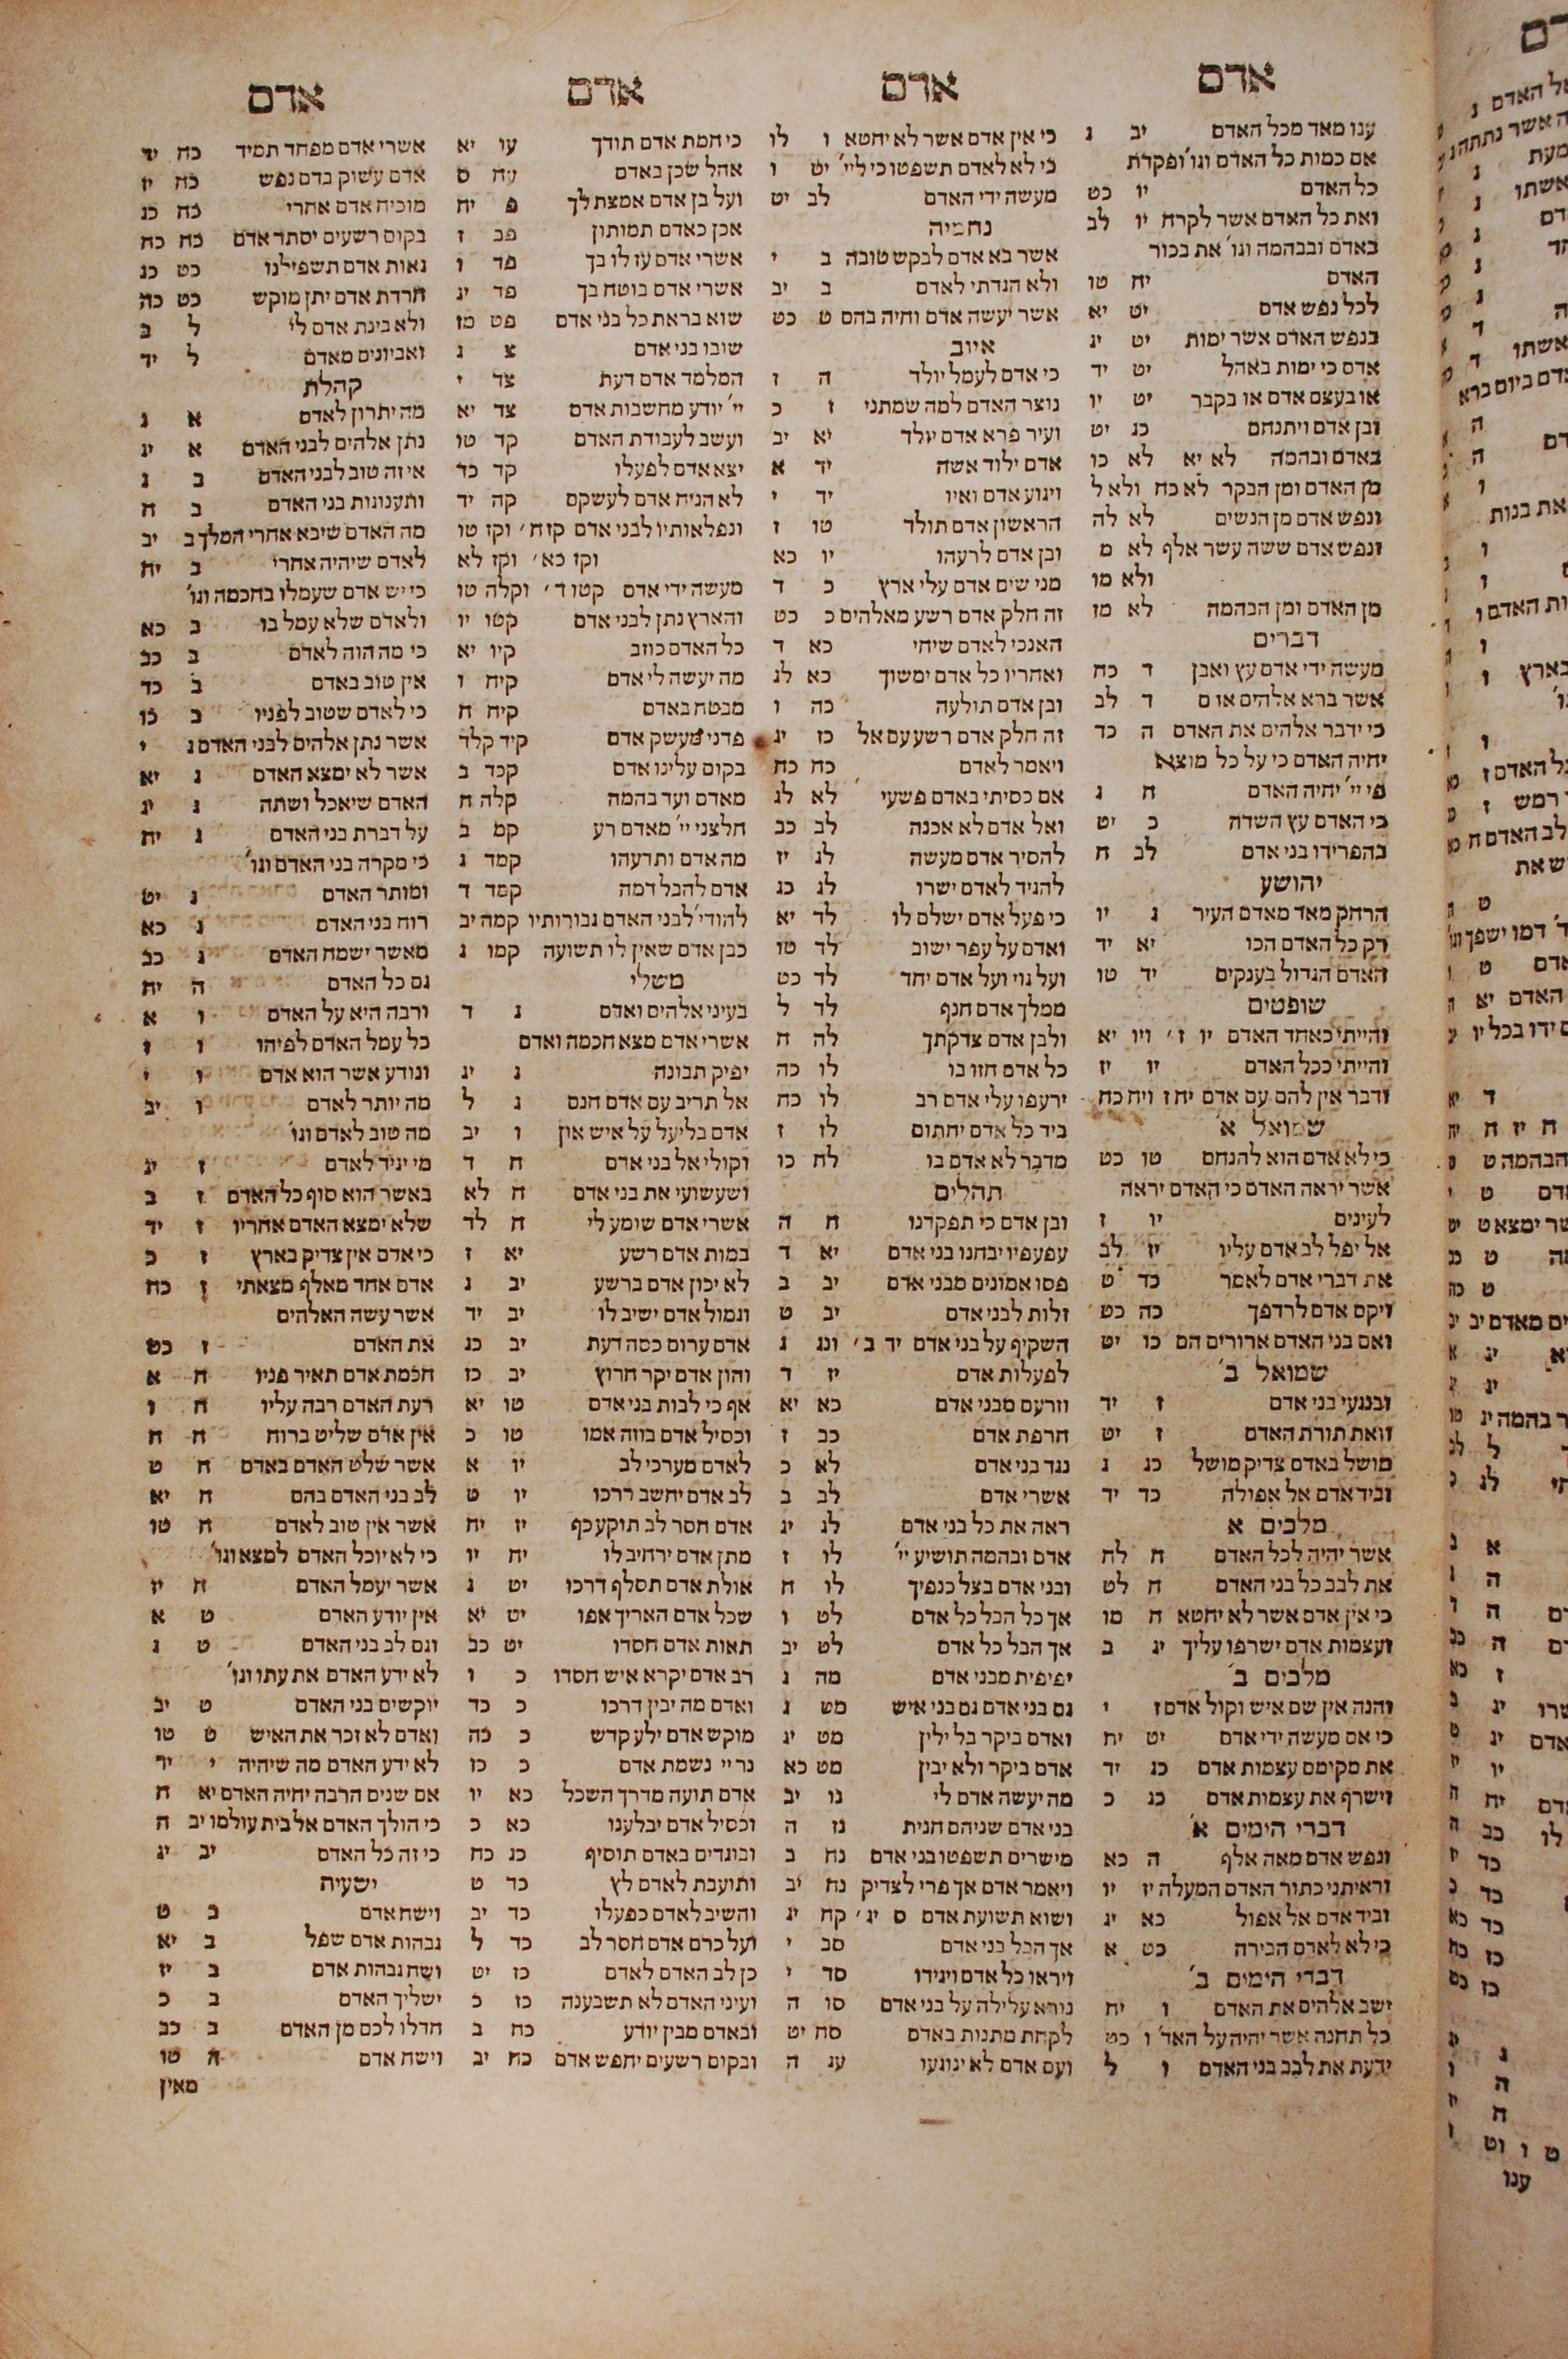 אדם
ענו מאד מכל האדם יב ג
אם כמות כל האדם וגו' ופקדת
כל האדם יו כט
ואת כל האדם אשר לקרח יו לב
באדם ובבהמה וגו' את בכור
האדם יח טו
לכל נפש אדם יט יא
בנפש האדם אשר ימות יט יג
אדם כי ימות באהל יט יד
או בעצם אדם או בקבר יט יו
ובן אדם ויתנחם כג יט
באדם ובהמה לא יא לא כו
מן האדם ומן הבקר לא כח ולא ל
ונפש אדם מן הנשים לא לה
ונפש אדם ששה עשר אלף לא מ
ולא מו
מן האדם ומן הבהמה לא מז
דברים
מעשה ידי אדם עץ ואבן ד כח
אשר ברא אלהים אדם ד לב
כי ידבר אלהים את האדם ה כד
יחיה האדם כי על כל מוצא
פי יי' יחיה האדם ח ג
כי האדם עץ השדה כ יט
בהפרידו בני אדם לב ח
יהושע
הרחק מאד מאדם העיר ג יו
רק כל האדם הכו יא יד
האדם הגדול בענקים יד טו
שופטים
והייתי כאחד האדם יו ז' ויו יא
והייתי ככל האדם יו יז
ודבר אין להם עם אדם יח ז ויח כח
שמואל א'
כי לא אדם הוא להנחם טו כט
אשר יראה האדם כי האדם יראה
לעינים יו ז
אל יפל לב אדם עליו יז לב
את דברי אדם לאמר כד ט
ויקם אדם לרדפך כה כט
ואם בני האדם ארורים הם כו יט
שמואל ב'
ובנגעי בני אדם ז יד
וזאת תורת האדם ז יט
מושל באדם צדיק מושל כג ג
וביד אדם אל אפולה כד יד
מלכים א
אשר יהיה לכל האדם ח לח
את לבב כל בני האדם ח לט
כי אין אדם אשר לא יחטא ח מו
ועצמות אדם ישרפו עליך יג ב
מלכים ב'
והנה אין שם איש וקול אדם ז י
כי אם מעשה ידי אדם יט יח
את מקומם עצמות אדם כג יד
וישרף את עצמות אדם כג כ
דברי הימים א'
ונפש אדם מאה אלף ה כא
וראיתני כתור האדם המעלה יז יו
וביד אדם אל אפול כא יג
כי לא לאדם הבירה כט א
דברי הימים ב'
ישב אלהים את האדם ו יח
כל תחנה אשר יהיה על האד' ו כט
ידעת את לבב בני האדם ו ל
אדם
כי אין אדם אשר לא יחטא ו לו
כי לא לאדם תשפטו כי ליי' יט ו
מעשה ידי האדם לב יט
נחמיה
אשר בא אדם לבקש טובה ב י
ולא הגדתי לאדם ב יב
אשר יעשה אדם וחיה בהם ט כט
איוב
כי אדם לעמל יולד ה ז
נוצר האדם למה שמתני ז כ
ועיר פרא אדם יולד יא יב
אדם ילוד אשה יד א
ויגוע אדם ואיו יד י
הראשון אדם תולד טו ז
ובן אדם לרעהו יו כא
מני שים אדם עלי ארץ כ ד
זה חלק אדם רשע מאלהים כ כט
האנכי לאדם שיחי כא ד
ואחריו כל אדם ימשוך כא לג
ובן אדם תולעה כה ו
זה חלק אדם רשע עם אל כז יג
ויאמר לאדם כח כח
אם כסיתי כאדם פשעי לא לג
ואל אדם לא אכנה לב כב
להסיר אדם מעשה לג יז
להגיד לאדם ישרו לג כג
כי פעל אדם ישלם לו לד יא
ואדם על עפר ישוב לד טו
ועל גוי ועל אדם יחד לד כט
ממלך אדם חנף לד ל
ולבן אדם צדקתך לה ח
כל אדם חזו בו לו כה
ירעפו עלי אדם רב לו כח
ביד כל אדם יחתום לז ז
מדבר לא אדם בו לח כו
תהלים
ובן אדם כי תפקדנו ח ה
עפעפיו יבחנו בני אדם יא ד
פסו אמונים מבני אדם יב ב
זלות לבני אדם יב ט
השקיף על בני אדם יד ב' ונג ג
לפעלות אדם יז ד
וזרעם מבני אדם כא יא
חרפת אדם כב ז
נגד בני אדם לא כ
אשרי אדם לב ב
ראה את כל בני אדם לג יג
אדם ובהמה תושיע יי' לו ז
ובני אדם בצל כנפיך לו ח
אך כל הבל כל אדם לט ו
אך הבל כל אדם לט יב
יפיפית מבני אדם מה ג
גם בני אדם גם בני איש מט ג
ואדם ביקר בל ילין מט יג
אדם ביקר ולא יבין מט כא
מה יעשה אדם לי נו יב
בני אדם שניהם חנית נז ה
מישרים תשפטו בני אדם נח ב
ויאמר אדם אך פרי לצדיק נח יב
ושוא תשועת אדם ס יג' קח יג
אך הבל בני אדם סב י
ויראו כל אדם ויגידו סד י
נורא עלילה על בני אדם סו ה
לקחת מתנות באדם סח יט
ועם אדם לא ינוגעו עג ה
אדם
כי חמת אדם תודך עו יא
אהל שכן באדם עח ס
ועל בן אדם אמצת לך פ יח
אכן כאדם תמותון פב ז
אשרי אדם עז לו בך פד ו
אשרי אדם בוטח בך פד יג
שוא בראת כל בני אדם פט מז
שובו בני אדם צ ג
המלמד אדם דעת צד י
יי' יודע מחשבות אדם צד יא
ועשב לעבודת האדם קד טו
יצא אדם לפעלו קד כד
לא הניח אדם לעשקם קה יד
ונפלאותיו לבני אדם קז ח' וקז טו
וקז כא' וקז לא
מעשה ידי אדם קטו ד' וקלה טו
והארץ נתן לבני אדם קטו יו
כל האדם כוזב קיו יא
מה יעשה לי אדם קיח ו
מבטח באדם קיח ח
פדני מעשק אדם קיד קלד
בקום עלינו אדם קכד ב
מאדם ועד בהמה קלה ח
חלצני יי' מאדם רע קמ ב
מה אדם ותדעהו קמד ג
אדם להבל דמה קמד ד
להודי' לבני האדם גבורותיו קמה יב
בבן אדם שאין לו תשועה קמו ג
משלי
בעיני אלהים ואדם ג ד
אשרי אדם מצא חכמה ואדם
יפיק תבונה ג יג
אל תריב עם אדם חנם ג ל
אדם בליעל על איש און ו יב
וקולי אל בני אדם ח ד
ושעשועי את בני אדם ח לא
אשרי אדם שומע לי ח לד
במות אדם רשע יא ז
לא יכון אדם ברשע יב ג
וגמול אדם ישיב לו יב יד
אדם ערום כסה דעת יב כג
והון אדם יקר חרוץ יב כז
אף כי לבות בני אדם טו יא
וכסיל אדם בוזה אמו טו כ
לאדם מערכי לב יו א
לב אדם יחשב דרכו יו ט
אדם חסר לב תוקע כף יז יח
מתן אדם ירחיב לו יח יו
אולת אדם תסלף דרכו יט ג
שכל אדם האריך אפו יט יא
תאות אדם חסדו יט כב
רב אדם יקרא איש חסדו כ ו
ואדם מה יבין דרכו כ כד
מוקש אדם ילע קדש כ כה
נר יי נשמת אדם כ כז
אדם תועה מדרך השכל כא יו
וכסיל אדם יבלענו כא כ
ובוגדים באדם תוסיף כג כח
ותועבת לאדם לץ כד ט
והשיב לאדם כפעלו כד יב
ועל כרם אדם חסר לב כד ל
כן לב האדם לאדם כז יט
ועיני האדם לא תשבענה כז כ
ובאדם מבין יודע כח ב
ובקום רשעים יחפש אדם כח יב
אדם
אשרי אדם מפחד תמיד כח יד
אדם עשוק בדם נפש כח יז
מוכיח אדם אחרי כח כג
בקום רשעים יסתר אדם כח כח
גאות אדם תשפילנו כט כג
חרדת אדם יתן מוקש כט כה
ולא בינת אדם לי ל ב
ואביונים מאדם ל יד
קהלת
מה יתרון לאדם א ג
נתן אלהים לבני האדם א יג
אי זה טוב לבני האדם ב ג
ותענוגות בני האדם ב ח
מה האדם שיבא אחרי המלך ב יב
לאדם שיהיה אחרי ב יח
כי יש אדם שעמלו בחכמה וגו'
ולאדם שלא עמל בו ב כא
כי מה הוה לאדם ב כב
אין טוב באדם ב כד
כי לאדם שטוב לפניו ב כו
אשר נתן אלהים לבני האדם ג י
אשר לא ימצא האדם ג יא
האדם שיאכל ושתה ג יג
על דברת בני האדם ג יח
כי מקרה בני האדם וגו'
ומותר האדם ג יט
רוח בני האדם ג כא
מאשר ישמח האדם ג כב
גם כל האדם ה יח
ורבה היא על האדם ו א
כל עמל האדם לפיהו ו ז
ונודע אשר הוא אדם ו י
מה יותר לאדם ו יב
מה טוב לאדם וגו'
מי יגיד לאדם ז יג
באשר הוא סוף כל האדם ז ב
שלא ימצא האדם אחריו ז יד
כי אדם אין צדיק בארץ ז כ
אדם אחד מאלף מצאתי ז כח
אשר עשה האלהים
את האדם ז כט
חכמת אדם תאיר פניו ח א
רעת האדם רבה עליו ח ו
אין אדם שליט ברוח ח ח
אשר שלט האדם באדם ח ט
לב בני האדם בהם ח יא
אשר אין טוב לאדם ח טו
כי לא יוכל האדם למצא וגו'
אשר יעמל האדם ח יז
אין יודע האדם ט א
וגם לב בני האדם ט ג
לא ידע האדם את עתו וגו'
יוקשים בני האדם ט יב
ואדם לא זכר את האיש ט טו
לא ידע האדם מה שיהיה י יד
אם שנים הרבה יחיה האדם יא ח
כי הולך האדם אל בית עולמו יב ה
כי זה כל האדם יב יג
ישעיה
וישח אדם ב ט
גבהות אדם שפל ב יא
ושח גבהות אדם ב יז
ישליך האדם ב כ
חדלו לכם מן האדם ב כב
וישח אדם ה טו
מאין